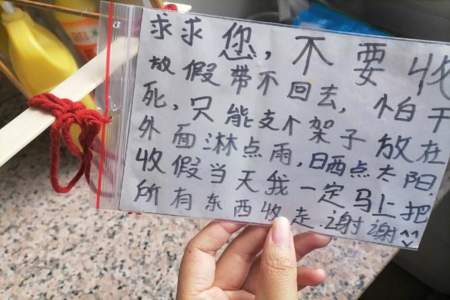 求求您,不要收
放假带不回去,怕干
死,只能支个架子放在
外面淋点雨,日晒点太阳.
收假当天我一定马上把
所有东西收走.谢谢^^